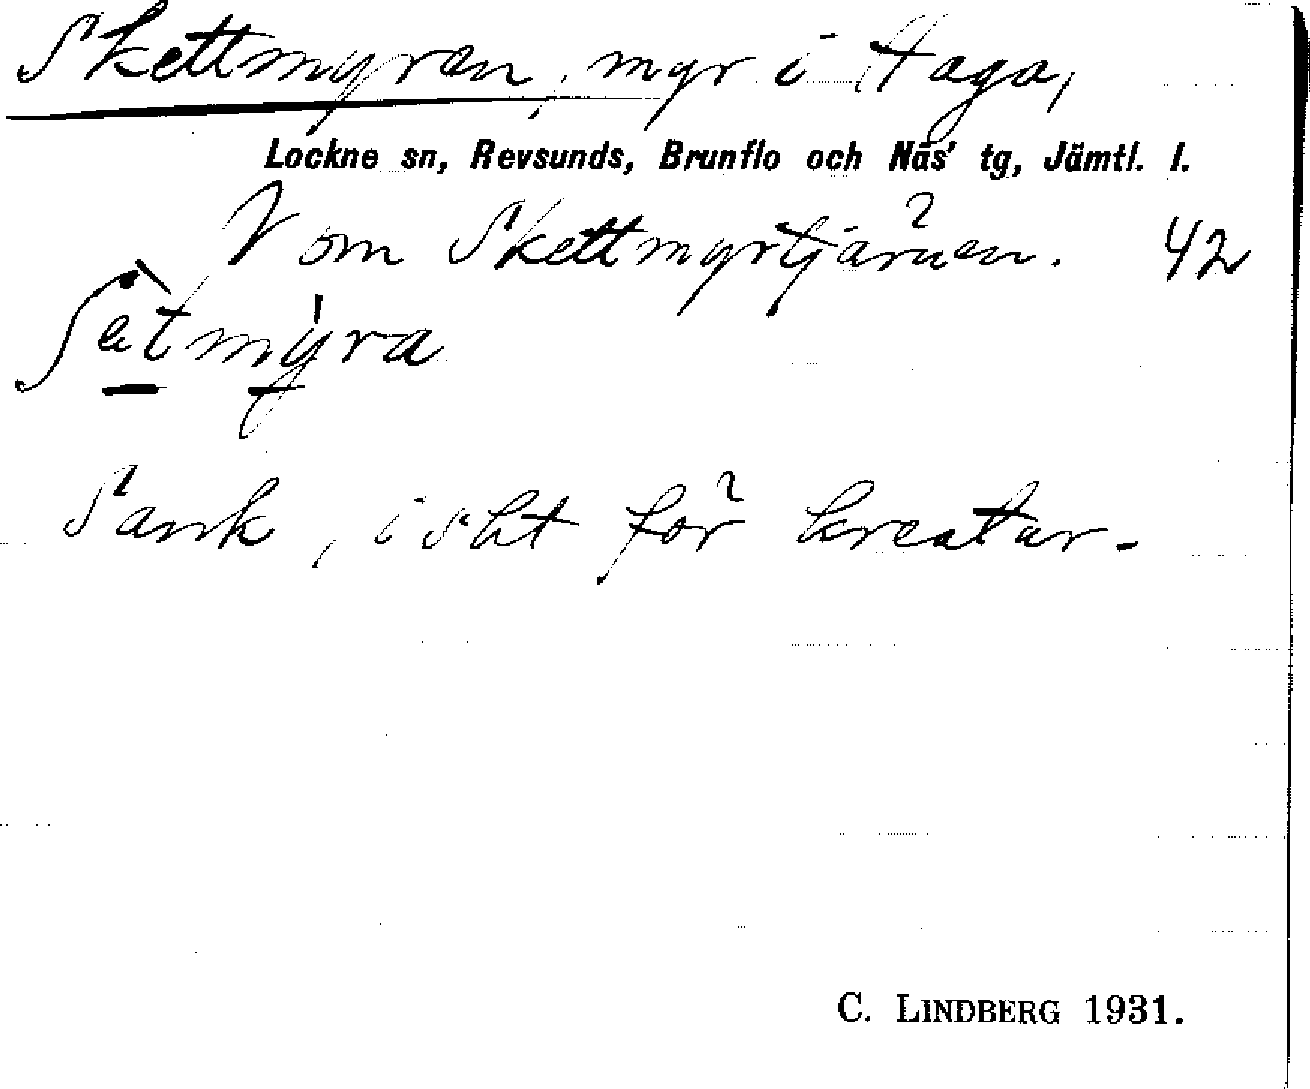 Skettmyren, myr i Haga,
Lockne sn, Revsunds, Brunflo och Näs' tg, Jämtl. l.
V om Skettmyrtjärnen. 42
ʃètmy̍ra
Sank, isht för kreatur.
C. LINDBERG 1931.